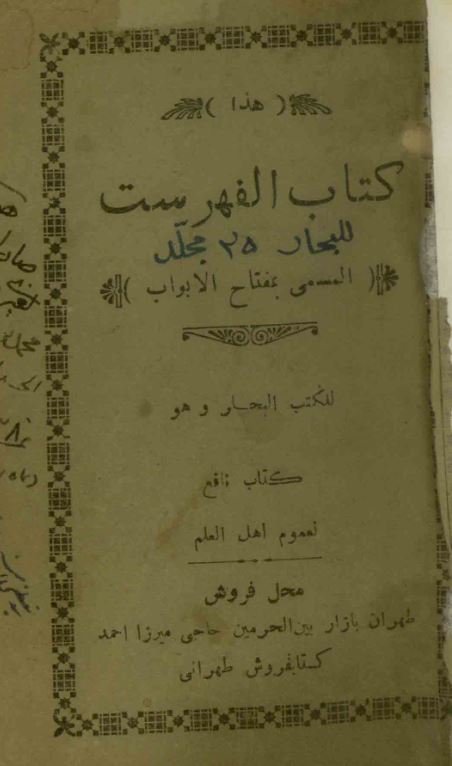 ( هذا )
كتاب الفهرست
للبحار ٢٥ مجلّد
( المسمى بمفتاح الابواب )
للكتب البحار و هو
كتاب نافع
لعموم اهل العلم
محل فروش
طهران بازار بين الحرمين حاجى ميرزا احمد
كتابفروش طهرانى